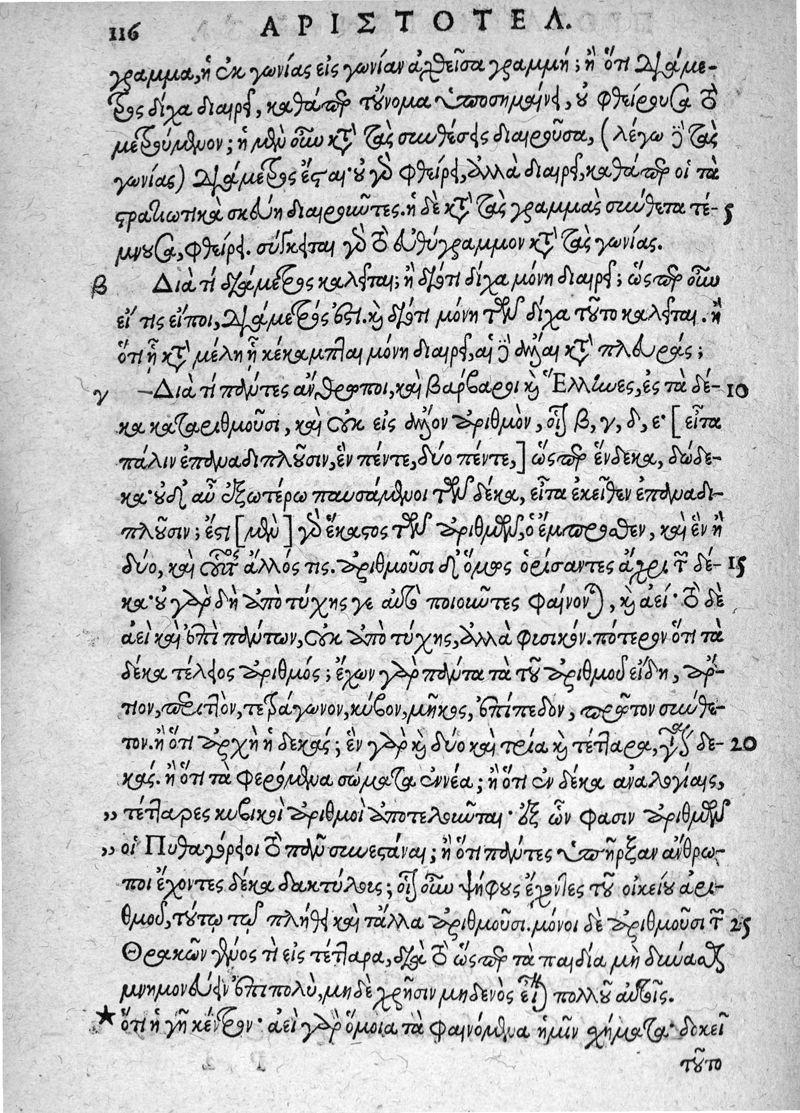 116 ΑΡΙΣΤΟΤΕΛ.
γραμμα, ἡ ἐκ γωνίας εἰς γωνίαν ἀχθεῖσα γραμμή; ἢ ὅτι Διάμε-
τρος δίχα διαιρεῖ, καθάπερ τοὔνομα ὑποσημαίνει, οὐ φθείρουσα τὸ
μετρούμενον; ἡ μὲν οὖν κατὰ τὰς συνθέσεις διαιροῦσα, (λέγω δὲ τὰς
γωνίας) Διάμετρος ἔσται· οὐ γὰρ φθείρει, ἀλλὰ διαιρεῖ, καθάπερ οἱ τὰ
στρατιωτικὰ σκεύη διαιροῦντες. ἡ δὲ κατὰ τὰς γραμμὰς σύνθετα τέ- 5
μνουσα, φθείρει. σύγκειται γὰρ τὸ εὐθύγραμμον κατὰ τὰς γωνίας.
β Διὰ τί διάμετρος καλεῖται; ἢ διότι δίχα μόνη διαιρεῖ; ὥσπερ οὖν
εἴ τις εἴποι, Διάμετρός ἐστι. καὶ διότι μόνη τῶν δίχα τοῦτο καλεῖται. ἢ
ὅτι ᾗ κατὰ μέλη ᾗ κέκαμπται μόνη διαιρεῖ, αἱ δὲ ἄλλαι κατὰ πλευράς;
γ —Διὰ τί πάντες ἄνθρωποι, καὶ βάρβαροι καὶ Ἕλληνες, ἐς τὰ δέ- 10
κα καταριθμοῦσι, καὶ οὐκ εἰς ἄλλον ἀριθμὸν, οἷον β, γ, δ, ε· [εἶτα
πάλιν ἐπαναδιπλοῦσιν, ἓν πέντε, δύο πέντε,] ὥσπερ ἕνδεκα, δώδε-
κα· οὐδ' αὖ ἐξωτέρω παυσάμενοι τῶν δέκα, εἶτα ἐκεῖθεν ἐπαναδι-
πλοῦσιν; ἔστι [μὲν] γὰρ ἕκαστος τῶν ἀριθμῶν, ὁ ἔμπροσθεν, καὶ ἓν ἢ
δύο, καὶ οὗτος ἄλλός τις. ἀριθμοῦσι δ' ὅμως ὁρίσαντες ἄχρι τῶν δέ- 15
κα· οὐ γὰρ δὴ ἀπὸ τύχης γε αὐτὸ ποιοῦντες φαίνονται, καὶ ἀεί· τὸ δὲ
ἀεὶ καὶ ἐπὶ πάντων, οὐκ ἀπὸ τύχης, ἀλλὰ φυσικόν. πότερον ὅτι τὰ
δέκα τέλειος ἀριθμός; ἔχων γὰρ πάντα τὰ τοῦ ἀριθμοῦ εἴδη, ἄρ-
τιον, περιττὸν, τετράγωνον, κύβον, μῆκος, ἐπίπεδον, πρῶτον σύνθε-
τον. ἢ ὅτι ἀρχὴ ἡ δεκάς; ἓν γὰρ καὶ δύο καὶ τρία καὶ τέτταρα, γίνεται δε- 20
κάς. ἢ ὅτι τὰ φερόμενα σώματα ἐννέα; ἢ ὅτι ἐν δέκα ἀναλογίαις,
„ τέτταρες κυβικοὶ ἀριθμοὶ ἀποτελοῦνται· ἐξ ὧν φασιν ἀριθμῶν
„ οἱ Πυθαγόρειοι τὸ πᾶν συνεστάναι; ἢ ὅτι πάντες ὑπῆρξαν ἄνθρω-
ποι ἔχοντες δέκα δακτύλοις; οἷον οὖν ψήφους ἔχοντες τοῦ οἰκείου ἀρι-
θμοῦ, τούτῳ τῷ πλήθει καὶ τἄλλα ἀριθμοῦσι. μόνοι δὲ ἀριθμοῦσι τῶν 25
Θρᾳκῶν γένος τι εἰς τέτταρα, διὰ τὸ ὥσπερ τὰ παιδία μὴ δύνασθαι
μνημονεύειν ἐπιπολὺ, μηδὲ χρῆσιν μηδενὸς εἶναι πολλοῦ αὐτοῖς.
★ ὅτι ἡ γῆ κέντρον· ἀεὶ γὰρ ὅμοια τὰ φαινόμενα ἡμῖν σχήματα· δοκεῖ
τοῦτο